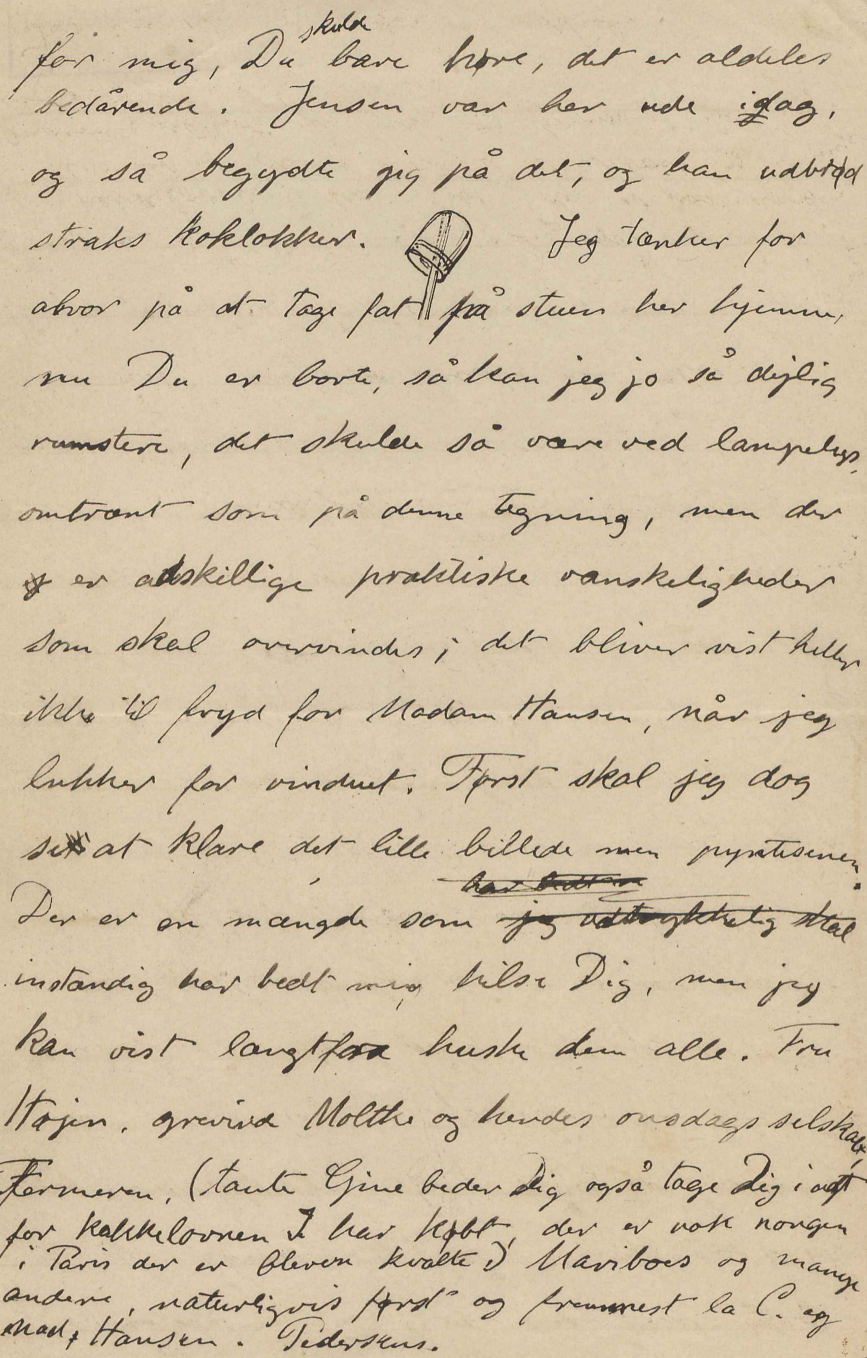 for mig, Du skulde bare høre, det er aldeles
bedårende. Jensen var her ude idag,
og så begyndte jig på det, og han udbrød
straks Koklokker. Jeg tænker for
alvor på at tage fat på stuen her hjemme,
nu Du er borte, så kan jeg jo så dejlig
rumstere, det skulde så være ved lampelys,
omtrent som på denne tegning, men der
er adskillige praktiske vanskeligheder
som skal overvindes; det bliver vist heller
ikke til fryd for Madam Hansen, når jeg
lukker for vinduet. Først skal jeg dog
se at klare det lille billede men
Der er en mængde som jeg udtrykkelig skal har bedt
instændig har bedt mig hilse Dig, men jeg
kan vist langtfra huske dem alle. Fru
Højen, grevinde Molthe og hendes onsdags selskab,
(tante Gine beder Dig også tage Dig i agt
for kakkelovnen I har købt, der er nok nongen
i Paris der er bleven kvalte) Mariboes og mange
andere, naturligvis først og fremmest la C. og
Mad. Hansen. Pedersens.